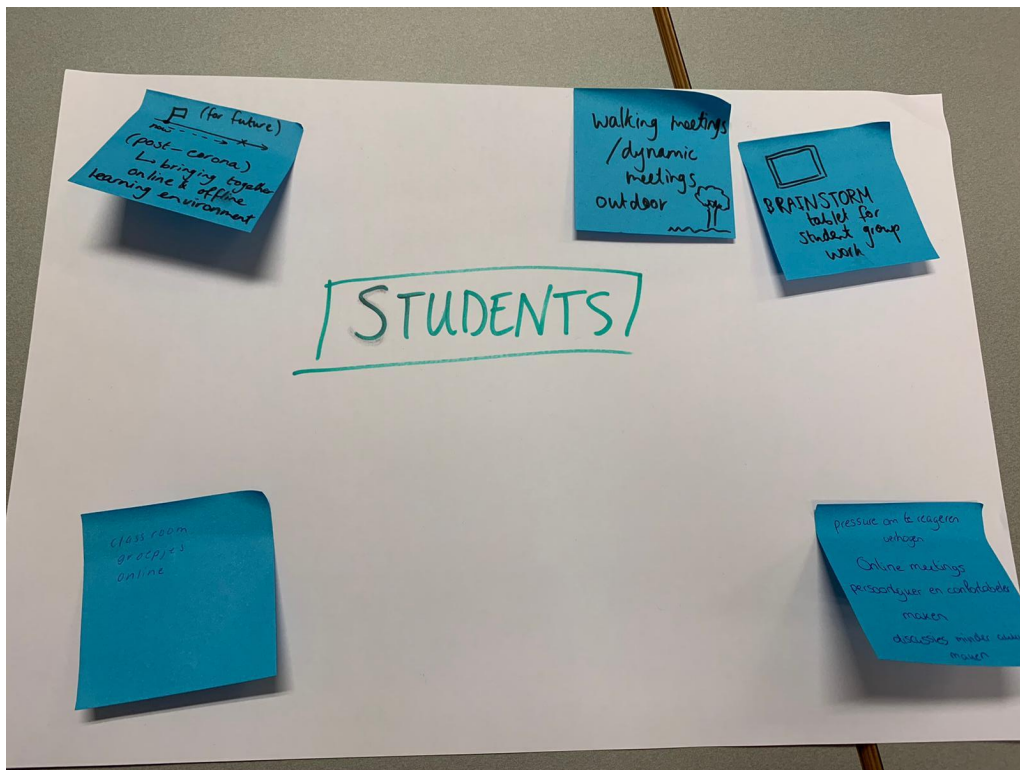 (for future)
now
(post-corona)
↳ bringing together
online & offline
learning environment
walking meetings
/dynamic
meetings
outdoor
BRAINSTORM
tablet for
student group
work
STUDENTS
classroom
groepjes
online
pressure om te reageren
verhogen
Online meetings
persoonlijker en comfortabeler
maken
discussies minder
maken